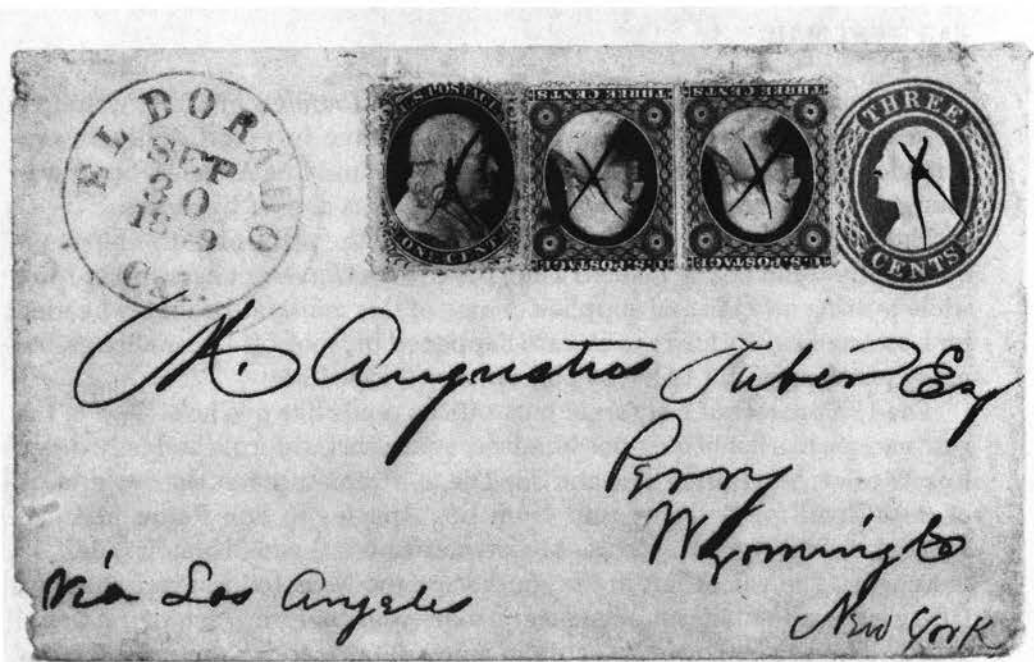 EL DORADO
SEP
30
1859
CAL.
U.S. POSTAGE
ONE CENT
THREE CENTS
U.S. POSTAGE
THREE CENTS
U.S. POSTAGE
THREE
CENTS
M. Augustus Taber Esq
Perry
Wyoming Co
New York
Via Los Angeles